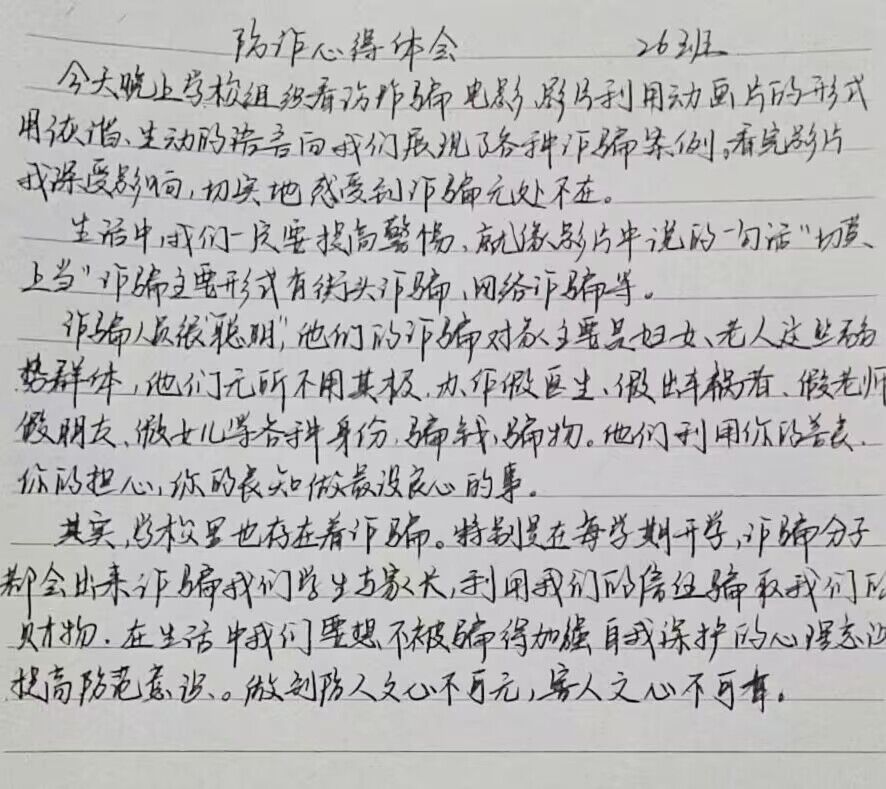 防诈心得体会 26班
今天晚上学校组织看防诈骗电影,影片利用动画片的形式
用诙谐、生动的语言向我们展现了各种诈骗案例。看完影片
我深受影响,切实地感受到诈骗无处不在。
生活中,我们一定要提高警惕、就像影片中说的一句话"切莫
上当"诈骗主要形式有街头诈骗、网络诈骗等。
诈骗人员很"聪明",他们的诈骗对象主要是妇女、老人这些弱
势群体,他们无所不用其极,办作假医生、假出车祸者、假老师
假朋友、假女儿等各种身份,骗钱,骗物。他们利用你的善良、
你的担心,你的良知做最没良心的事。
其实,学校里也存在着诈骗。特别是在每学期开学,诈骗分子
都会出来诈骗我们学生与家长,利用我们的信任骗取我们的
财物.在生活中我们要想不被骗得加强自我保护的心理意识
提高防范意识、。做到防人之心不可无,害人之心不可有。